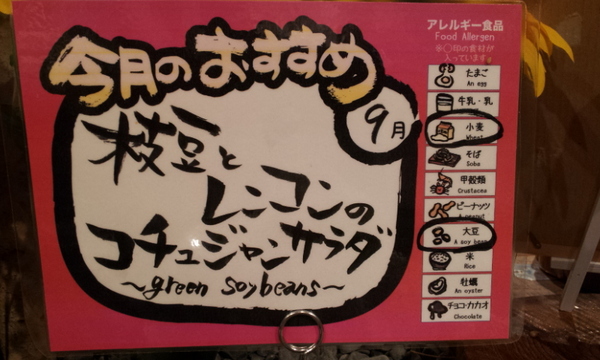 今月のおすすめ
9月
枝豆と
レンコンの
コチュジャンサラダ
~green soybeans~
アレルギー食品
Food Allergen
※○印の食材が
入っています
たまご
An egg
牛乳・乳
小麦
Wheat
そば
Soba
甲殻類
Crustacea
ピーナッツ
A peanut
大豆
A soy bean
米
Rice
牡蠣
An oyster
チョコ・カカオ
Chocolate